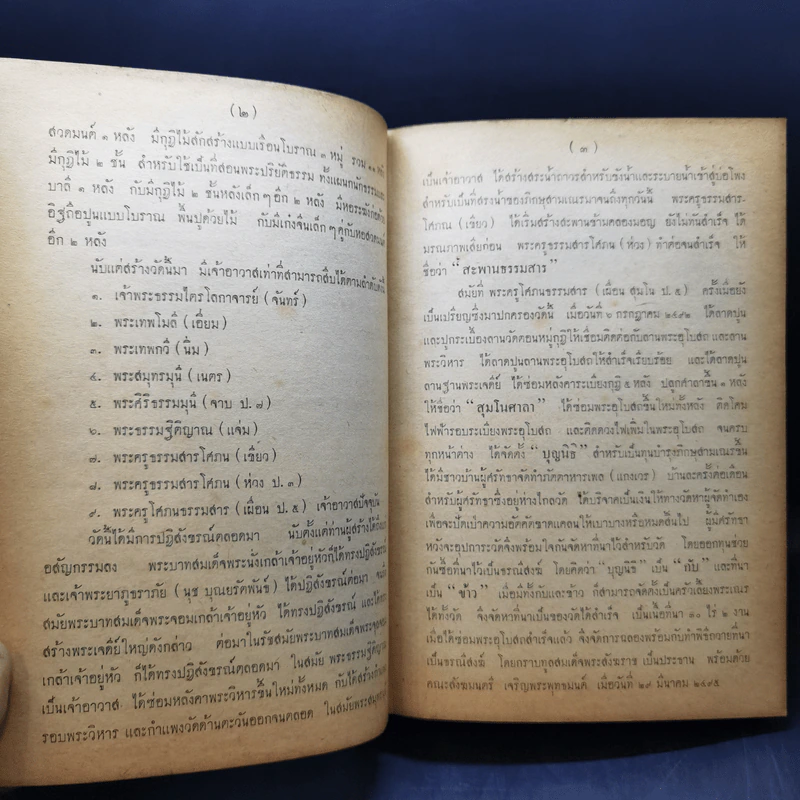 (๒)
สวดมนต์ ๑ หลัง มีกุฎิไม้สักสร้างแบบเรือนโบราณ ๓ หมู่ รวม
มีกุฎิไม้ ๒ ชั้น สำหรับใช้เป็นที่สอนพระปริยัติธรรม ทั้งแผนกนักธรรมและ
บาลี ๑ หลัง กับมีกุฎิไม้ ๒ ชั้นหลังเล็กๆ อีก ๒ หลัง มีหอระฆังก่อด้วย
อิฐถือปูนแบบโบราณ พื้นปูด้วยไม้ กับมีเก๋งจีนเล็กๆ คู่กับหอสวดมนต์
อีก ๒ หลัง
นับแต่สร้างวัดนี้มา มีเจ้าอาวาสเท่าที่สามารถสืบได้ตามลำดับดังนี้
๑. เจ้าพระธรรมไตรโลกาจารย์ (จันทร์)
๒. พระเทพโมลี (เอี่ยม)
๓. พระเทพกวี (นิ่ม)
๔. พระสมุทรมุนี (เนตร)
๕. พระศิริธรรมมุนี (จาบ ป.๗)
๖. พระธรรมฐิติญาณ (แจ่ม)
๗. พระครูธรรมสารโศภน (เขียว)
๘. พระครูธรรมสารโศภน (ห่วง ป.๓)
๙. พระครูโศภนธรรมสาร (เผื่อน ป.๕) เจ้าอาวาสปัจจุบัน
วัดนี้ได้มีการปฏิสังขรณ์ตลอดมา นับตั้งแต่ท่านผู้สร้างได้ถึง
อสัญกรรมลง พระบาทสมเด็จพระนั่งเกล้าเจ้าอยู่หัวก็ได้ทรงปฏิสังขรณ์
และเจ้าพระยาภูธราภัย (นุช บุณยรัตพันธ์) ได้ปฏิสังขรณ์ต่อมา
สมัยพระบาทสมเด็จพระจอมเกล้าเจ้าอยู่หัว ได้ทรงปฏิสังขรณ์ และได้
สร้างพระเจดีย์ใหญ่ดังกล่าว ต่อมาในรัชสมัยพระบาทสมเด็จพระจุลจอม
เกล้าเจ้าอยู่หัว ก็ได้ทรงปฏิสังขรณ์ตลอดมา ในสมัย พระธรรมฐิติญาณ
เป็นเจ้าอาวาส ได้ซ่อมหลังคาพระวิหารขึ้นใหม่ทั้งหมด กับได้สร้างกำแพง
รอบพระวิหาร และกำแพงวัดด้านตะวันออกจนตลอด ในสมัยพระสมุทร
(๓)
เป็นเจ้าอาวาส ได้สร้างสระน้ำถาวรสำหรับขังน้ำและระบายน้ำเข้าสู่บ่อโพง
สำหรับเป็นที่สรงน้ำของภิกษุสามเณรมาจนถึงทุกวันนี้ พระครูธรรมสาร-
โศภณ (เขียว) ได้เริ่มสร้างสะพานข้ามคลองมอญ ยังไม่ทันสำเร็จ ได้
มรณภาพเสียก่อน พระครูธรรมสารโศภน (ห่วง) ทำต่อจนสำเร็จ ให้
ชื่อว่า "สะพานธรรมสาร"
สมัยที่ พระครูโศภนธรรมสาร (เผื่อน สุมโน ป.๕) ครั้งเมื่อยัง
เป็นเปรียญซึ่งมาปกครองวัดนี้ เมื่อวันที่ ๖ กรกฎาคม ๒๔๙๒ ได้ลาดปูน
และปูกระเบื้องลานวัดตอนหมู่กุฎิให้เชื่อมติดต่อกับลานพระอุโบสถ และลาน
พระวิหาร ได้ลาดปูนลานพระอุโบสถให้สำเร็จเรียบร้อย และได้ลาดปูน
ลานฐานพระเจดีย์ ได้ซ่อมหลังคาระเบียงกุฎิ ๕ หลัง ปลูกศาลาขึ้น ๑ หลัง
ให้ชื่อว่า "สุมโนศาลา" ได้ซ่อมพระอุโบสถขึ้นใหม่ทั้งหลัง ติดโคม
ไฟฟ้ารอบระเบียงพระอุโบสถ และติดดวงไฟเพิ่มในพระอุโบสถ จนครบ
ทุกหน้าต่าง ได้จัดตั้ง "บุญนิธิ" สำหรับเป็นทุนบำรุงภิกษุสามเณรขึ้น
ได้มีชาวบ้านผู้ศรัทธาจัดทำภัตตาหารเพล (แกงเวร) บ้านละครั้งต่อเดือน
สำหรับผู้ศรัทธาซึ่งอยู่ห่างไกลวัด ได้บริจาคเป็นเงินให้ทางวัดหาผู้จัดทำเอง
เพื่อจะปัดเป่าความอัตคัดขาดแคลนให้เบาบางหรือหมดสิ้นไป ผู้มีศรัทธา
หวังจะอุปการะวัดจึงพร้อมใจกันจัดหาที่นาไว้สำหรับวัด โดยออกทุนช่วย
กันซื้อที่นาไว้เป็นธรณีสงฆ์ โดยคิดว่า "บุญนิธิ" เป็น "กับ" และที่นา
เป็น "ข้าว" เมื่อมีทั้งกับและข้าว ก็สามารถจัดตั้งเป็นครัวเลี้ยงพระเณร
ได้ทั้งวัด จึงจัดหาที่นาเป็นของวัดได้สำเร็จ เป็นเนื้อที่นา ๑๐ ไร่ ๒ งาน
เมื่อได้ซ่อมพระอุโบสถสำเร็จแล้ว จึงจัดการฉลองพร้อมกับทำพิธีถวายที่นา
เป็นธรณีสงฆ์ โดยกราบทูลสมเด็จพระสังฆราช เป็นประธาน พร้อมด้วย
คณะสังฆมนตรี เจริญพระพุทธมนต์ เมื่อวันที่ ๒๙ มีนาคม ๒๔๙๕